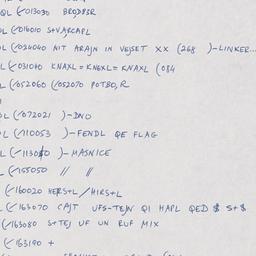 QL (013030 BRODPSR
OL (014010 S+VARCAPL
OL (024040 NIT ARAJN IN VEJSET XX (268 )-LINKER...
OL (031040 KNAXL = KNGXL = KNAXL (084
OL (052060 (/052070 POTBO, R
OL (072021 )-DNO
OL (110053 )-FENDL QE FLAG
L (113040 )-MASNICE
L (155050 // //
(160020 HERS+L / HIRS+L
L (163070 CAJT UFS-TEJN QI HAPL QED $ S+$
(163080 S+TEJ UF UN RUF MIX
(163190 +